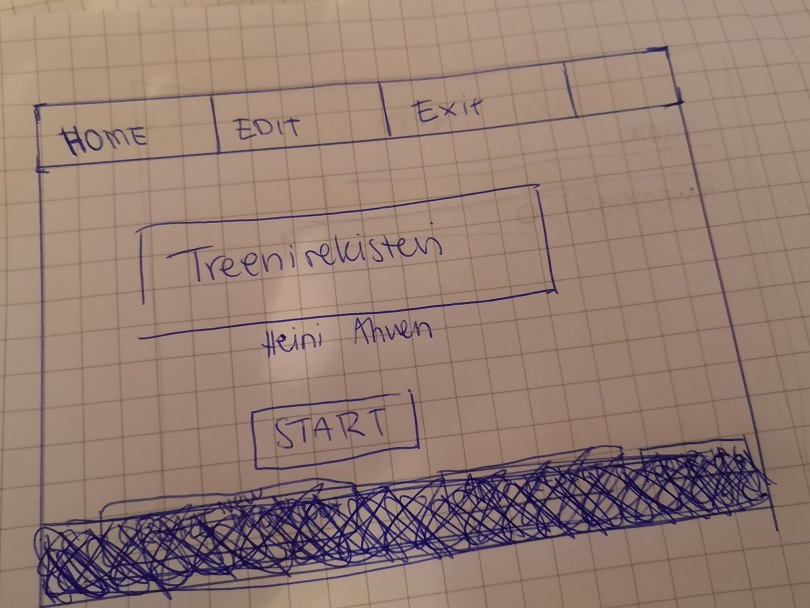 HOME EDIT Exit
Treenirekisteri
Heini Ahven
START